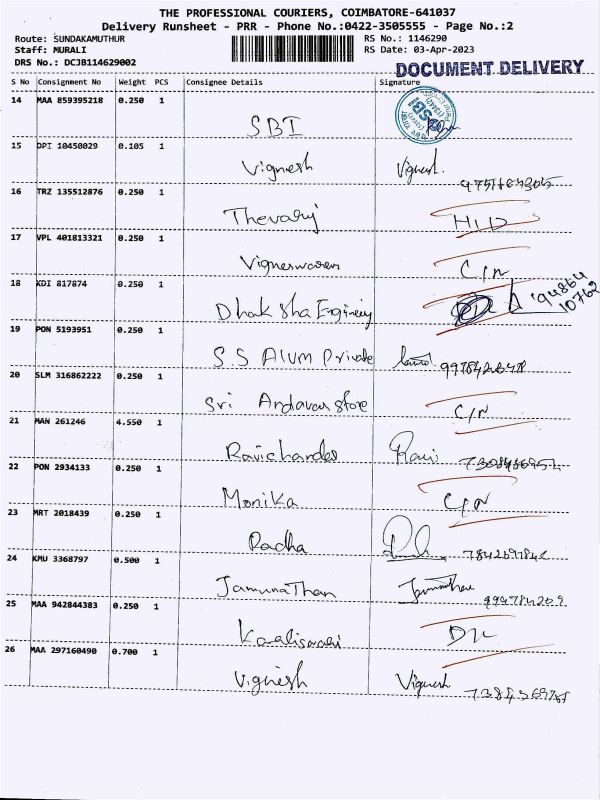 THE PROFESSIONAL COURIERS, COIMBATORE-641037
Delivery Runsheet - PRR - Phone No.:0422-3505555 - Page No.:2
Route: SUNDAKAMUTHUR RS No.: 1146290
Staff: MURALI RS Date: 03-Apr-2023
DRS No.: DCJB114629002
DOCUMENT DELIVERY
S No Consignment No Weight PCS Consignee Details Signature
14 MAA 859395218 0.250 1
SBI SBI
15 DPI 10450029 0.105 1
Vignesh Vignesh.
16 TRZ 135512876 0.250 1
Thevaraj H/D
17 VPL 401813321 0.250 1
Vigneswaran C/N
18 KDI 817874 0.250 1
Dhaksha Enginery 94864
10762
19 PON 5193951 0.250 1
S.S Alum Private
20 SLM 316862222 0.250 1
Sri Andavar store C/N
21 MAN 261246 4.550 1
Ravichander Ravi
22 PON 2934133 0.250 1
Monika C/N
23 MRT 2018439 0.250 1
Radha
24 KMU 3368797 0.500 1
Jamunathan
25 MAA 942844383 0.250 1
Kaaliswari D/L
26 MAA 297160490 0.700 1
Vignesh Vignesh